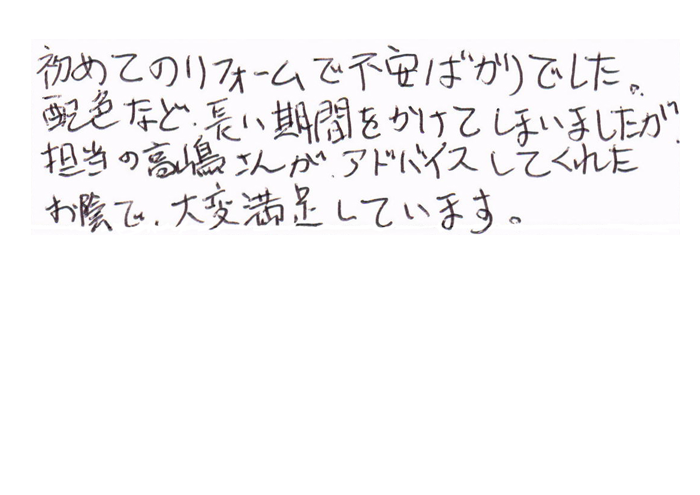 初めてのリフォームで不安ばかりでした。
配色など、長い期間をかけてしまいましたが、
担当の高嶋さんが、アドバイスしてくれた
お陰で、大変満足しています。